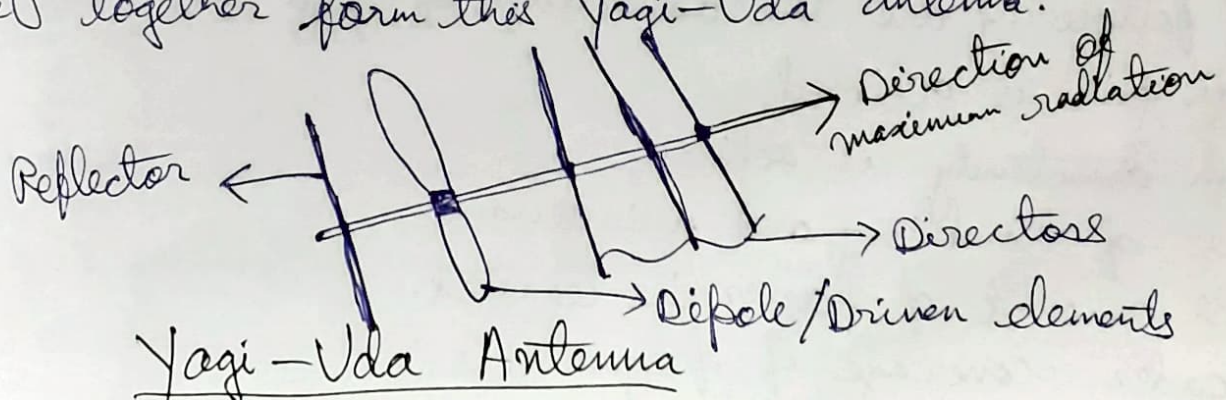 together form this Yagi-Uda antenna.
Direction of
maximum radiation
Reflector
Directors
Dipole/Driven elements
Yagi-Uda Antenna